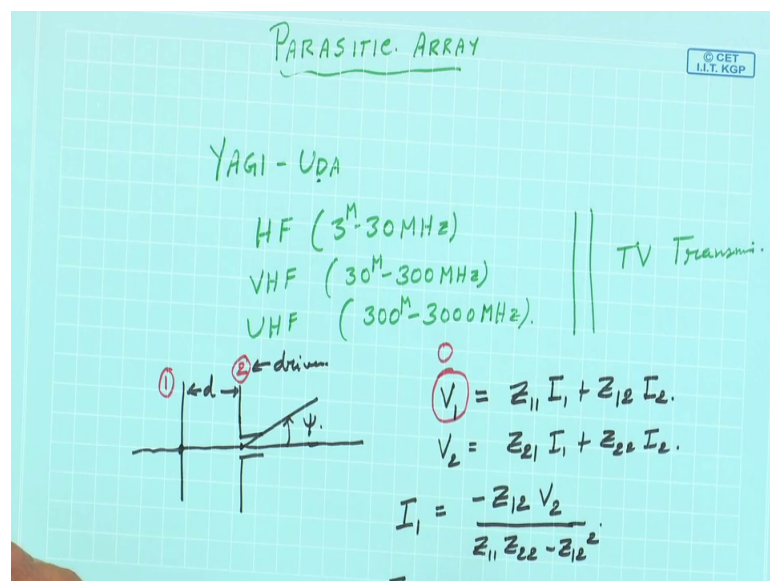 PARASITIC. ARRAY
© CET
I.I.T. KGP
YAGI - UDA
HF (3M-30MHz)
VHF (30M-300MHz)
UHF (300M-3000MHz).
TV Transmi.
① ←d→ ② ← driven
ψ.
0
V₁ = Z₁₁ I₁ + Z₁₂ I₂.
V₂ = Z₂₁ I₁ + Z₂₂ I₂.
I₁ = -Z₁₂ V₂ / Z₁₁ Z₂₂ - Z₁₂².